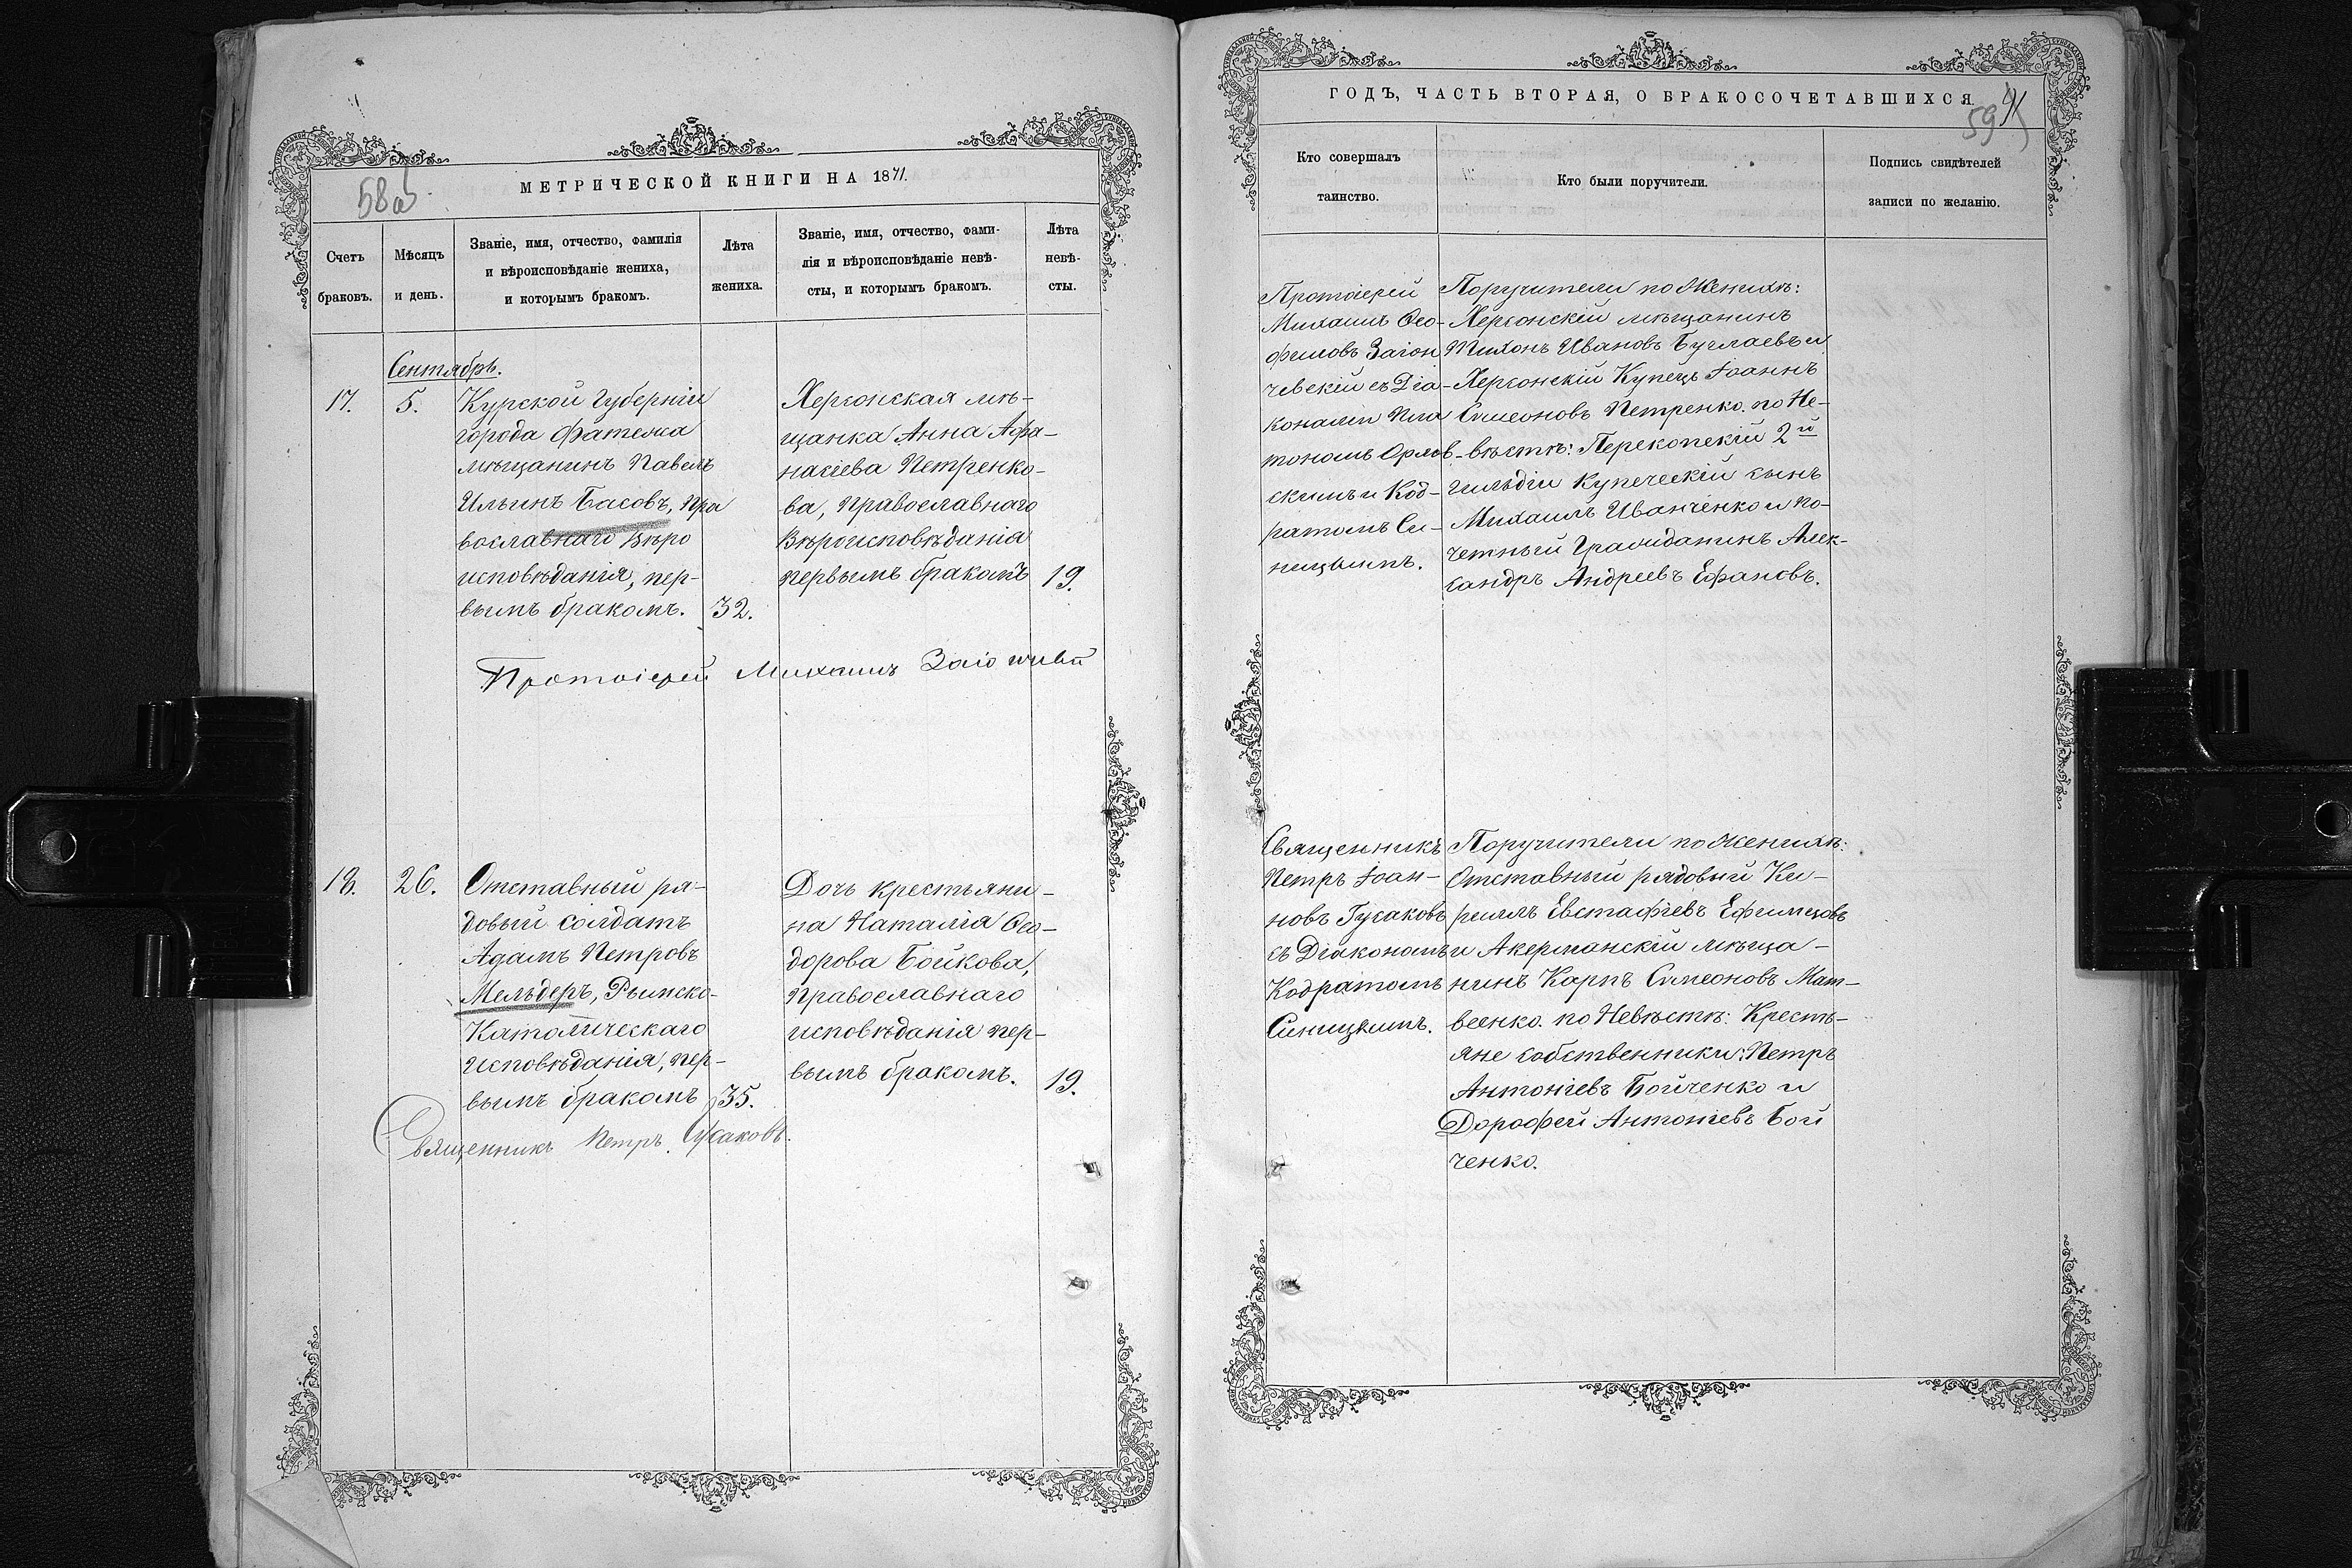 58об
МЕТРИЧЕСКОЙ КНИГИ НА 1871.
Счетъ
браковъ.
Мѣсяцъ
и день.
Званіе, имя, отчество, фамилія
и вѣроисповѣданіе жениха,
и которымъ бракомъ.
Лѣта
жениха.
Званіе, имя, отчество, фами-
лія и вѣроисповѣданіе невѣ-
сты, и которымъ бракомъ.
Лѣта
невѣ-
сты.
Сентябрь.
17.
5.
Курской Губерніи
города Фатежа
мѣщанинъ Павелъ
Ильинъ Басовъ, пра
вославнаго вѣро
исповѣданія, пер-
вымъ бракомъ.
32.
Херсонская мѣ-
щанка Анна Афа-
насіева Петренко-
ва, православнаго
вѣроисповѣданія
первымъ бракомъ
19.
Протоіерей Михаилъ
18.
26.
Отставный ря-
довый солдатъ
Адамъ Петровъ
Мельдеръ, Римско-
Католическаго
исповѣданія, пер-
вымъ бракомъ
35.
Дочь крестьяни-
на Наталія Ѳео-
дорова Бойкова,
православнаго
исповѣданія пер-
вымъ бракомъ.
19.
Священникъ Петръ Гусаковъ.
ГОДЪ, ЧАСТЬ ВТОРАЯ, О БРАКОСОЧЕТАВШИХСЯ.
59
Кто совершалъ
таинство.
Кто были поручители.
Подпись свидѣтелей
записи по желанію.
Протоіерей
Михаилъ Ѳео-
филовъ Заіон
чевскій съ Діа-
конами Пла
тономъ Орлов-
скимъ и Код-
ратомъ Си-
ницкимъ.
Поручители по Женихѣ:
Херсонскій мѣщанинъ
Тихонъ Ивановъ Буглаевъ и
Херсонскій Купецъ Іоаннъ
Симеоновъ Петренко. по Не-
вѣстѣ: Перекопскій 2й
гильдіи купеческій сынъ
Михаилъ Иванченко и по-
четный Гражданинъ Алек-
сандръ Андреевъ Ефановъ.
Священникъ
Петръ Іоан-
новъ Гусаковъ
съ Діакономъ
Кодратомъ
Синицкимъ.
Поручители по Женихѣ:
Отставный рядовый Ки-
риллъ Евстафіевъ Ефимцовъ
и Акерманскій мѣща-
нинъ Карпъ Симеоновъ Мат-
веенко. по Невѣстѣ: Кресть-
яне собственники: Петръ
Антоніевъ Бойченко и
Дорофей Антоніевъ Бой
ченко.